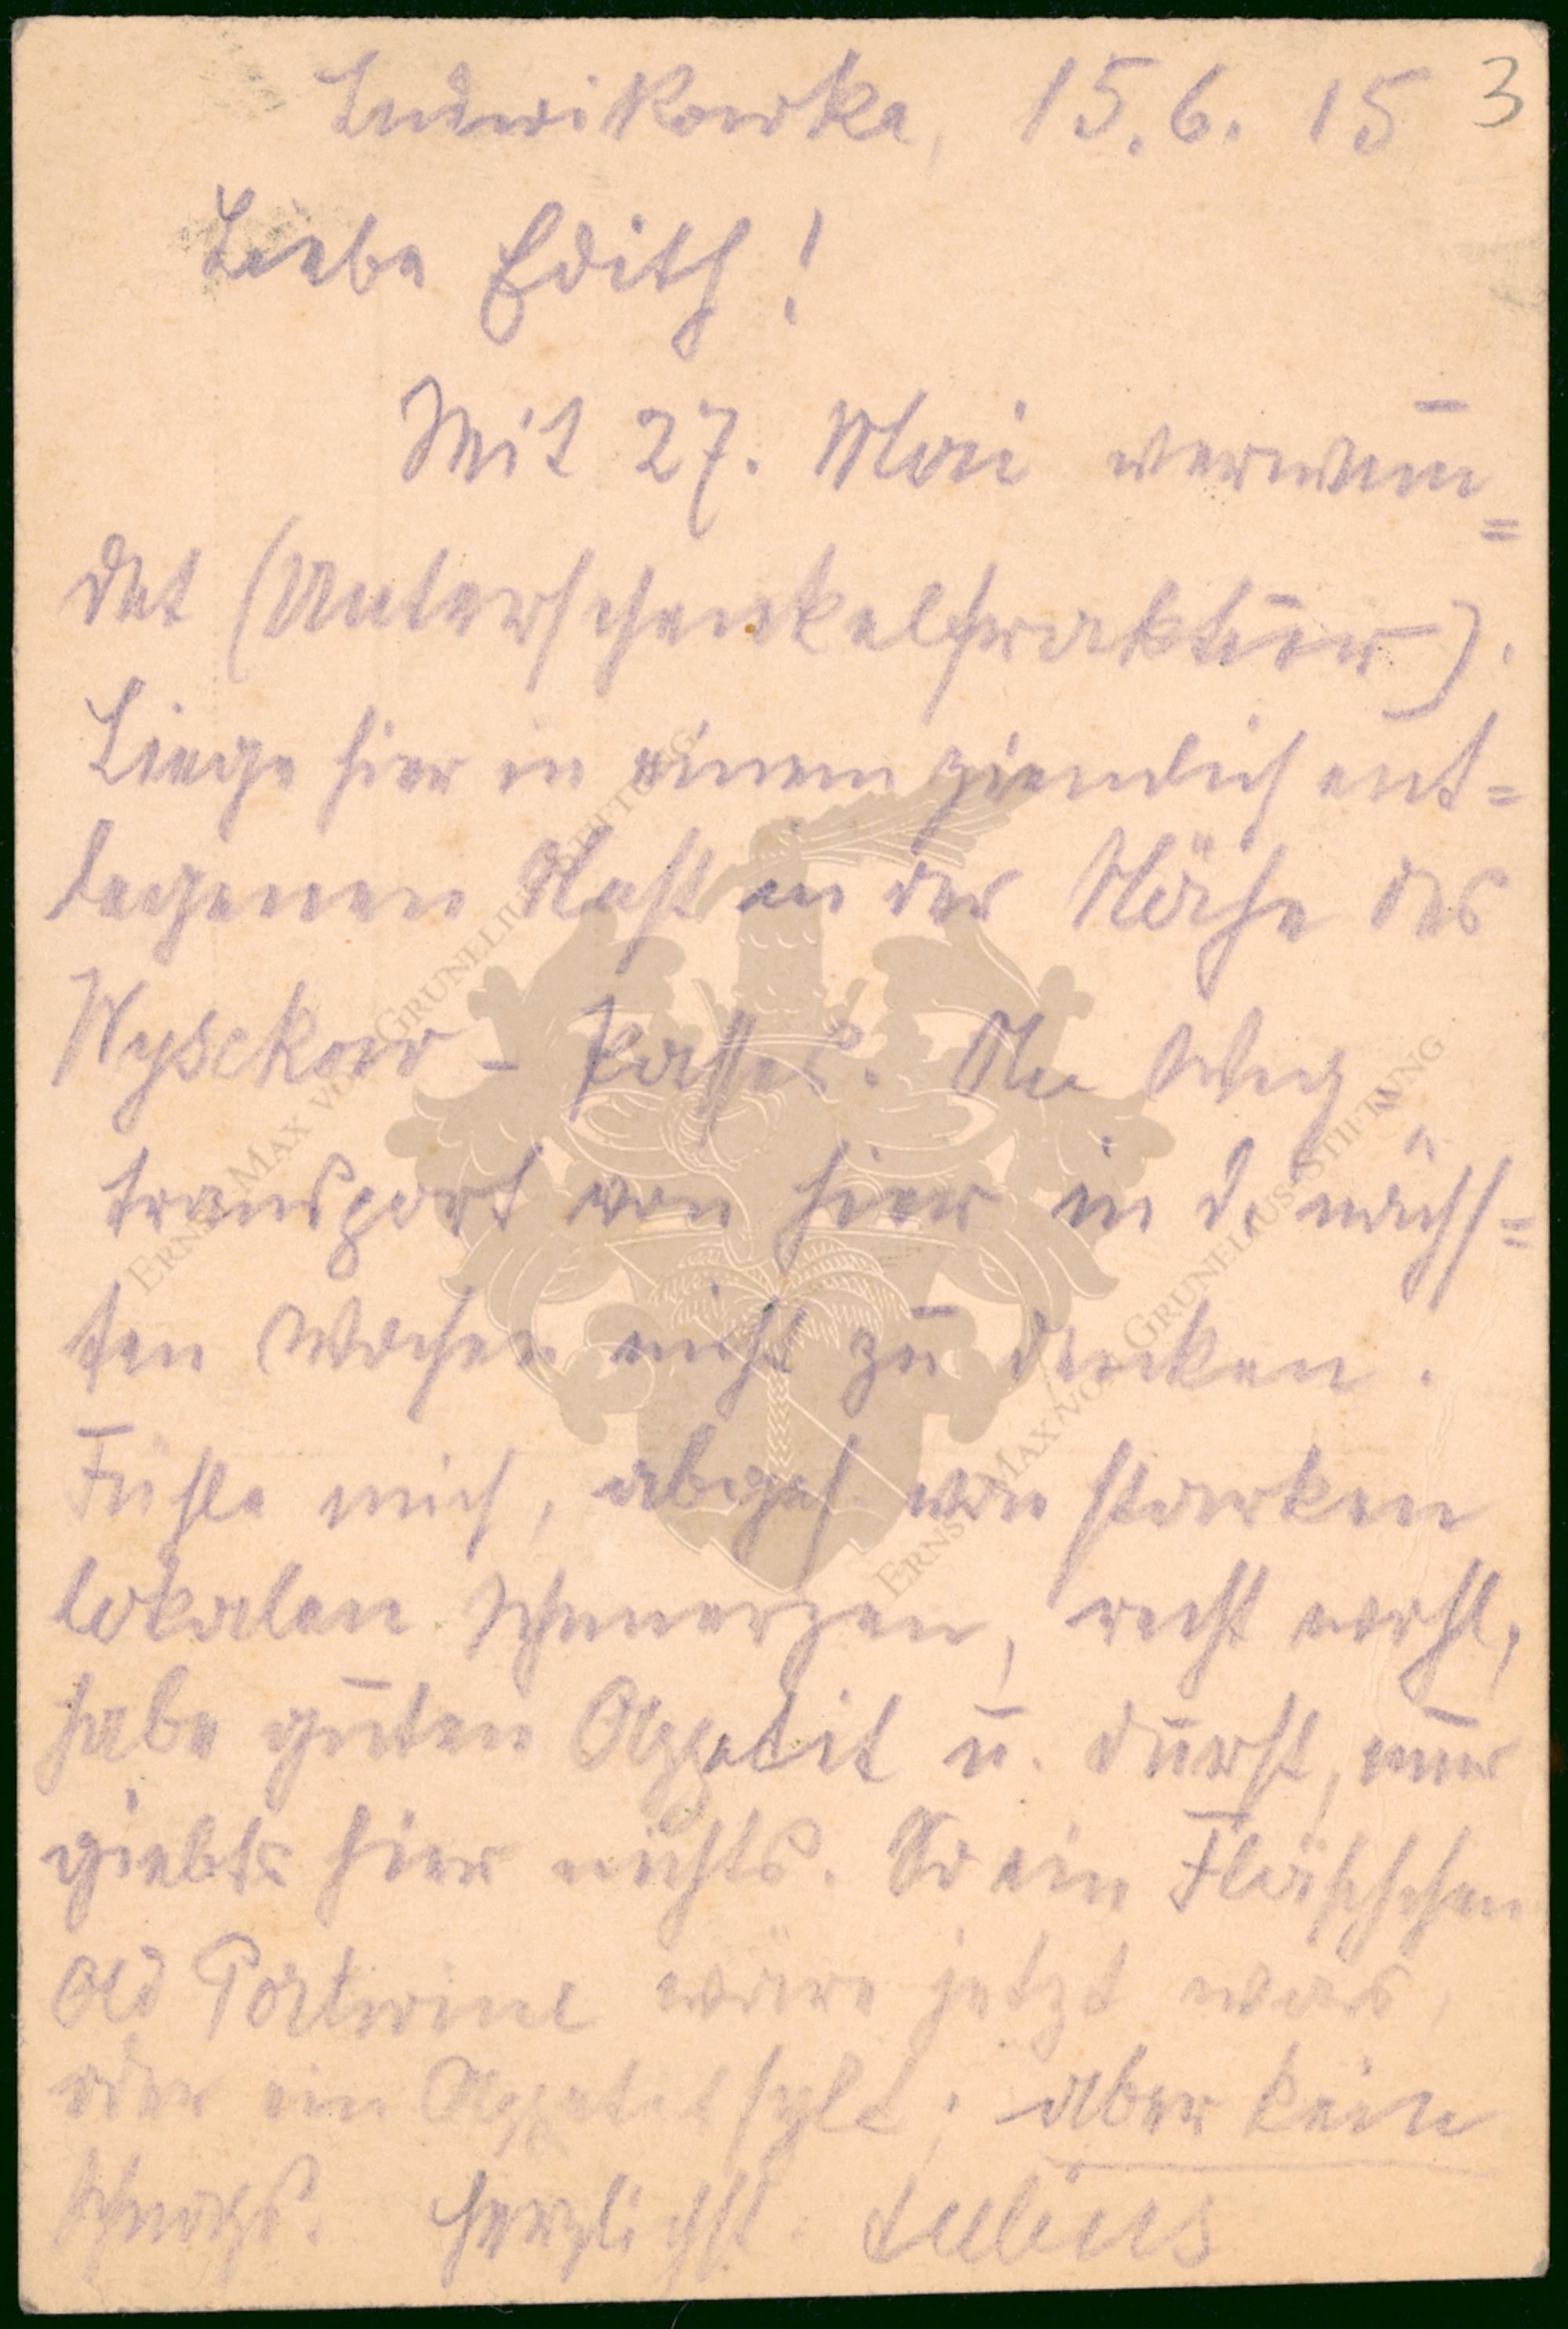 Ludwikowka, 15.6.15 3
Liebe Edith!
Mit 27. Mai verwun=
det (Unterschenkelfraktur).
Liege hier in einem ziemlich ent=
legenen Nest in der Nähe des
Wysckow - Passes. An Weg
transport von hier in d. nächs=
ten Wochen nicht zu denken.
Fühle mich, abges. von starken
lokalen Schmerzen, recht wohl,
habe guten Appetit u. Durst, nur
giebts hier nichts. So ein Fläschchen
Old Portwine wäre jetzt was,
oder ein Appetitsyld; aber kein
Schnaps. Herzlichst.
ERNST MAX VON GRUNELIUS-STIFTUNG
ERNST MAX VON GRUNELIUS-STIFTUNG